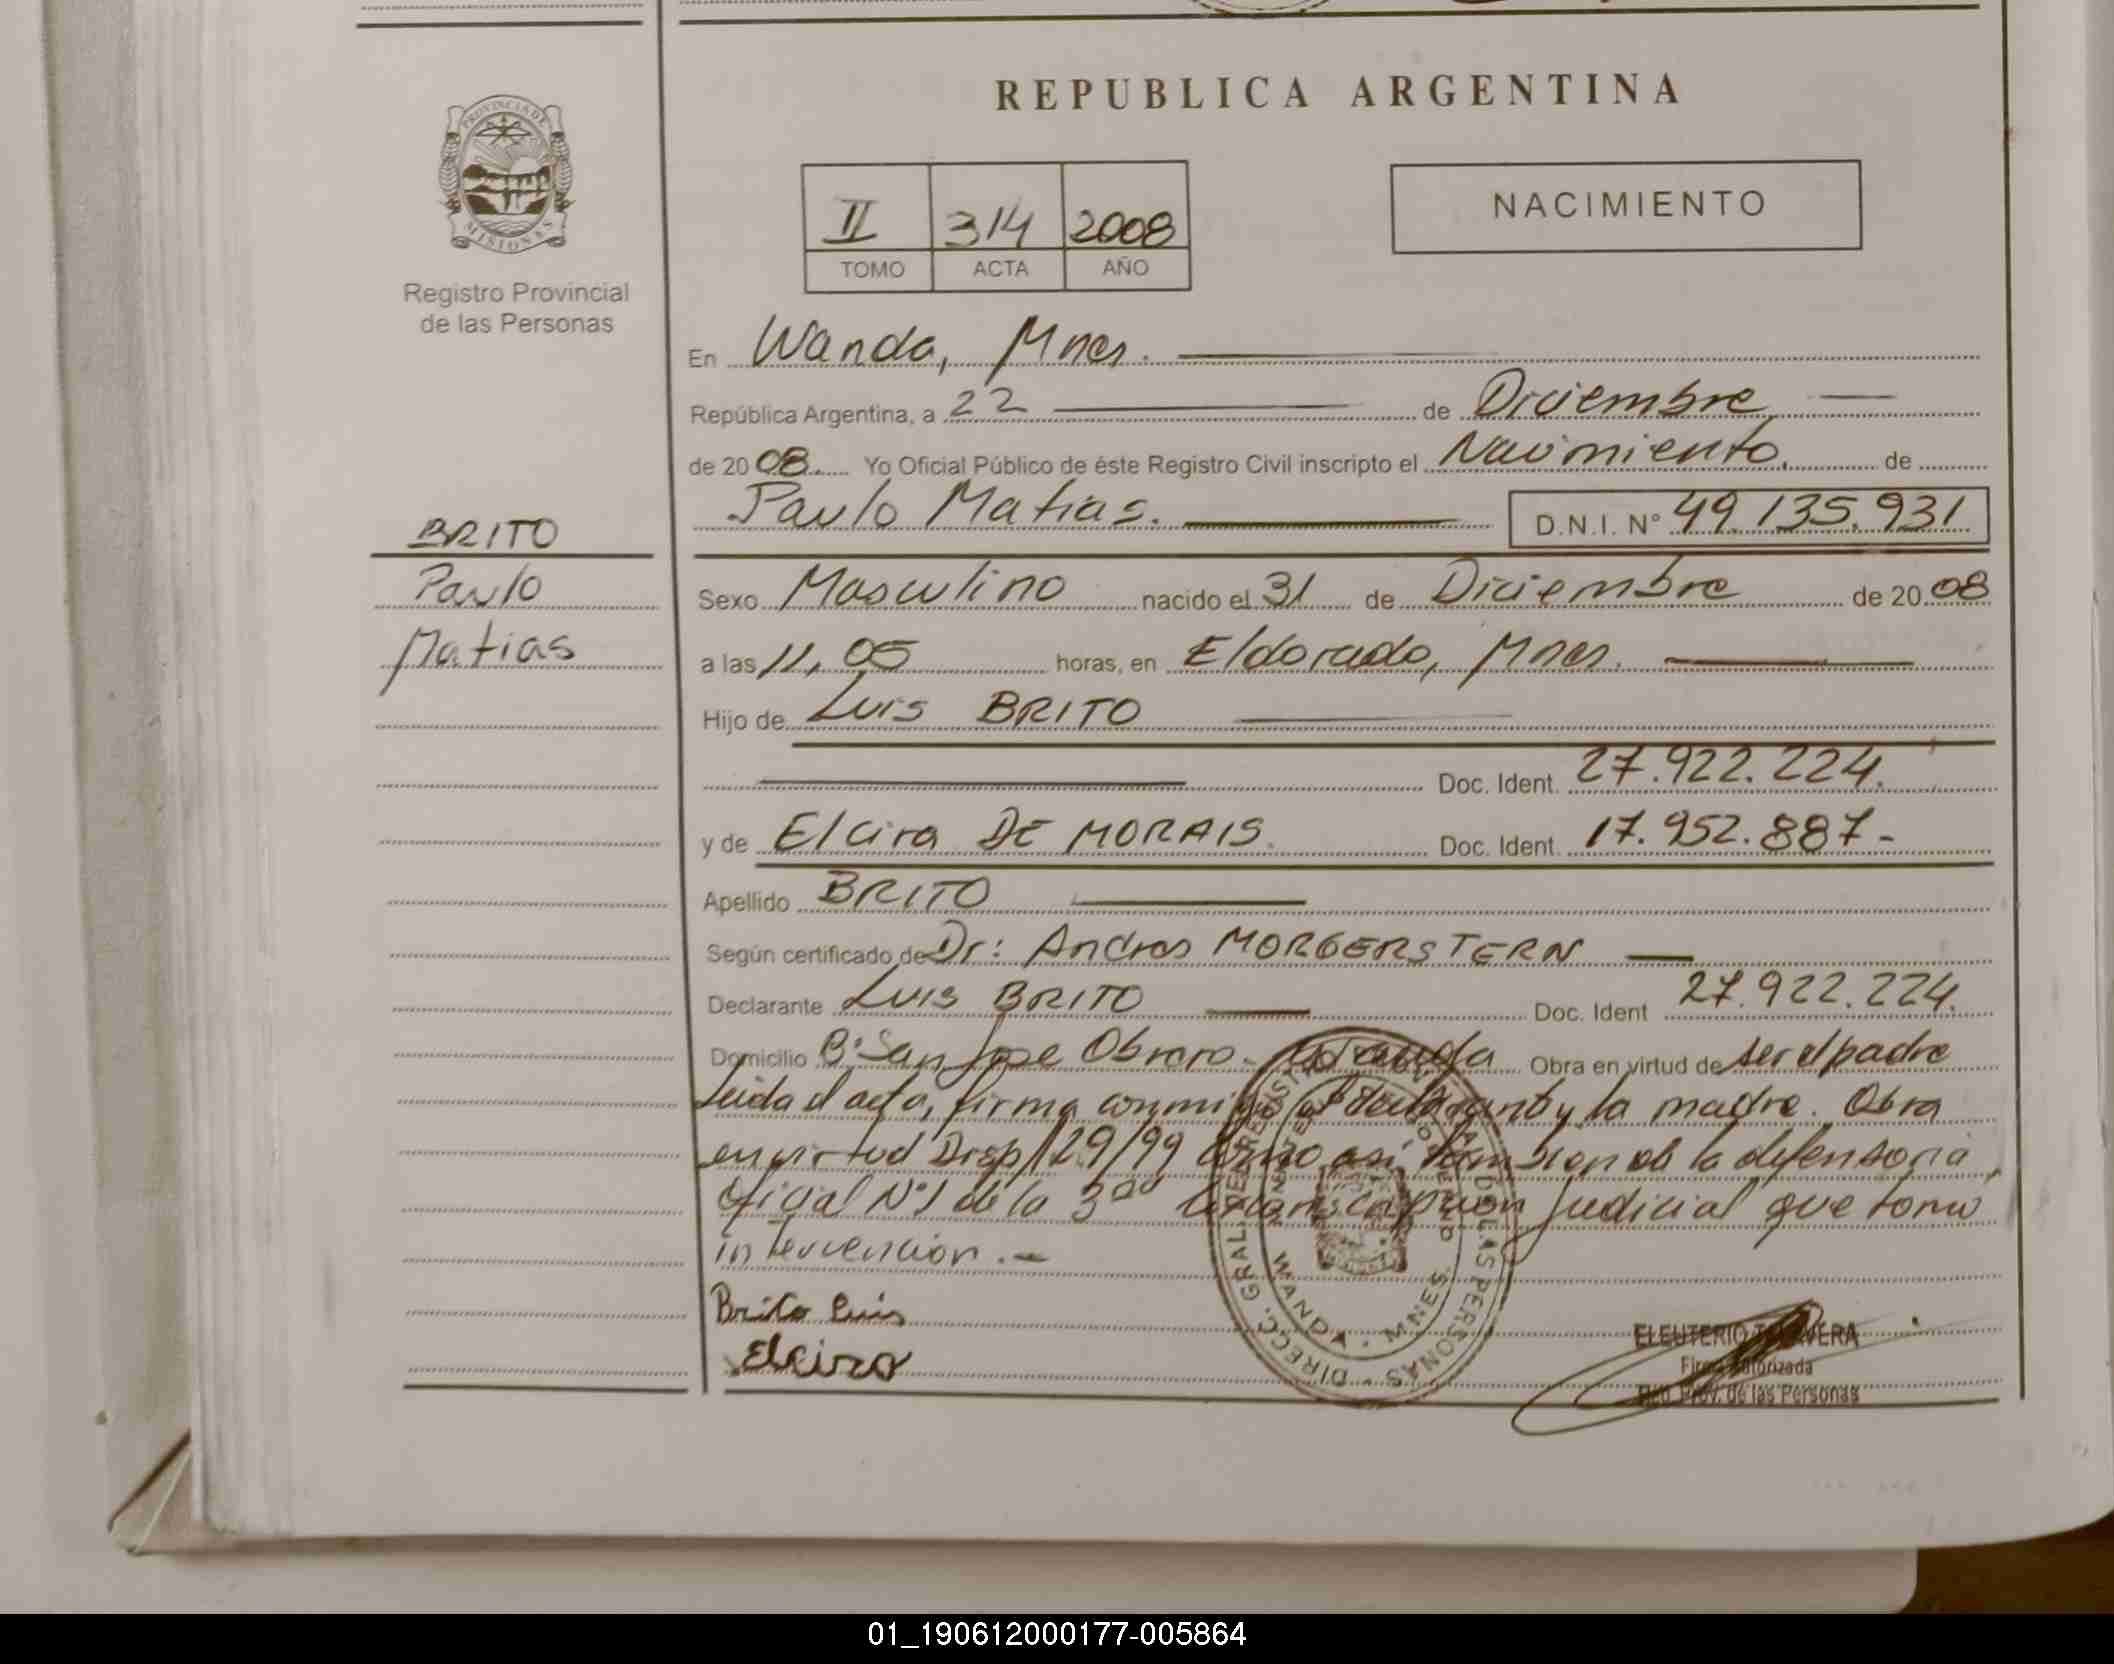 REPUBLICA ARGENTINA
PROVINCIA DE MISIONES
Registro Provincial
de las Personas
II 314 2008
TOMO ACTA AÑO
NACIMIENTO
En Wanda, Mnes.
República Argentina, a 22 de Diciembre
de 2008 Yo Oficial Público de éste Registro Civil inscripto el Nacimiento, de
Paulo Matias. D.N.I. N° 49.135.931
BRITO
Paulo
Matias
Sexo Masculino nacido el 31 de Diciembre de 2008
a las 11,05 horas, en Eldorado, Mnes.
Hijo de Luis BRITO
Doc. Ident. 27.922.224.
y de Elcira DE MORAIS. Doc. Ident. 17.952.887-
Apellido BRITO
Según certificado de Dr: Andres MORGERSTERN
Declarante Luis BRITO Doc. Ident 27.922.224.
Domicilio B° San Jose Obrero - Wanda Obra en virtud de ser el padre
Leida el acta, firma conmigo el declarante y la madre. Obra
en virtud Disp 129/99 como asi, tambien de la defensoria
oficial N°1 de la 3ra Circunscripcion Judicial que tomo
intervencion.-
Brito Luis
Elcira
DIRECC. GRAL. DE REGISTRO PROVINCIAL DE LAS PERSONAS
WANDA - MNES.
ELEUTERIO TALAVERA
Firma Autorizada
Reg. Prov. de las Personas
01_190612000177-005864